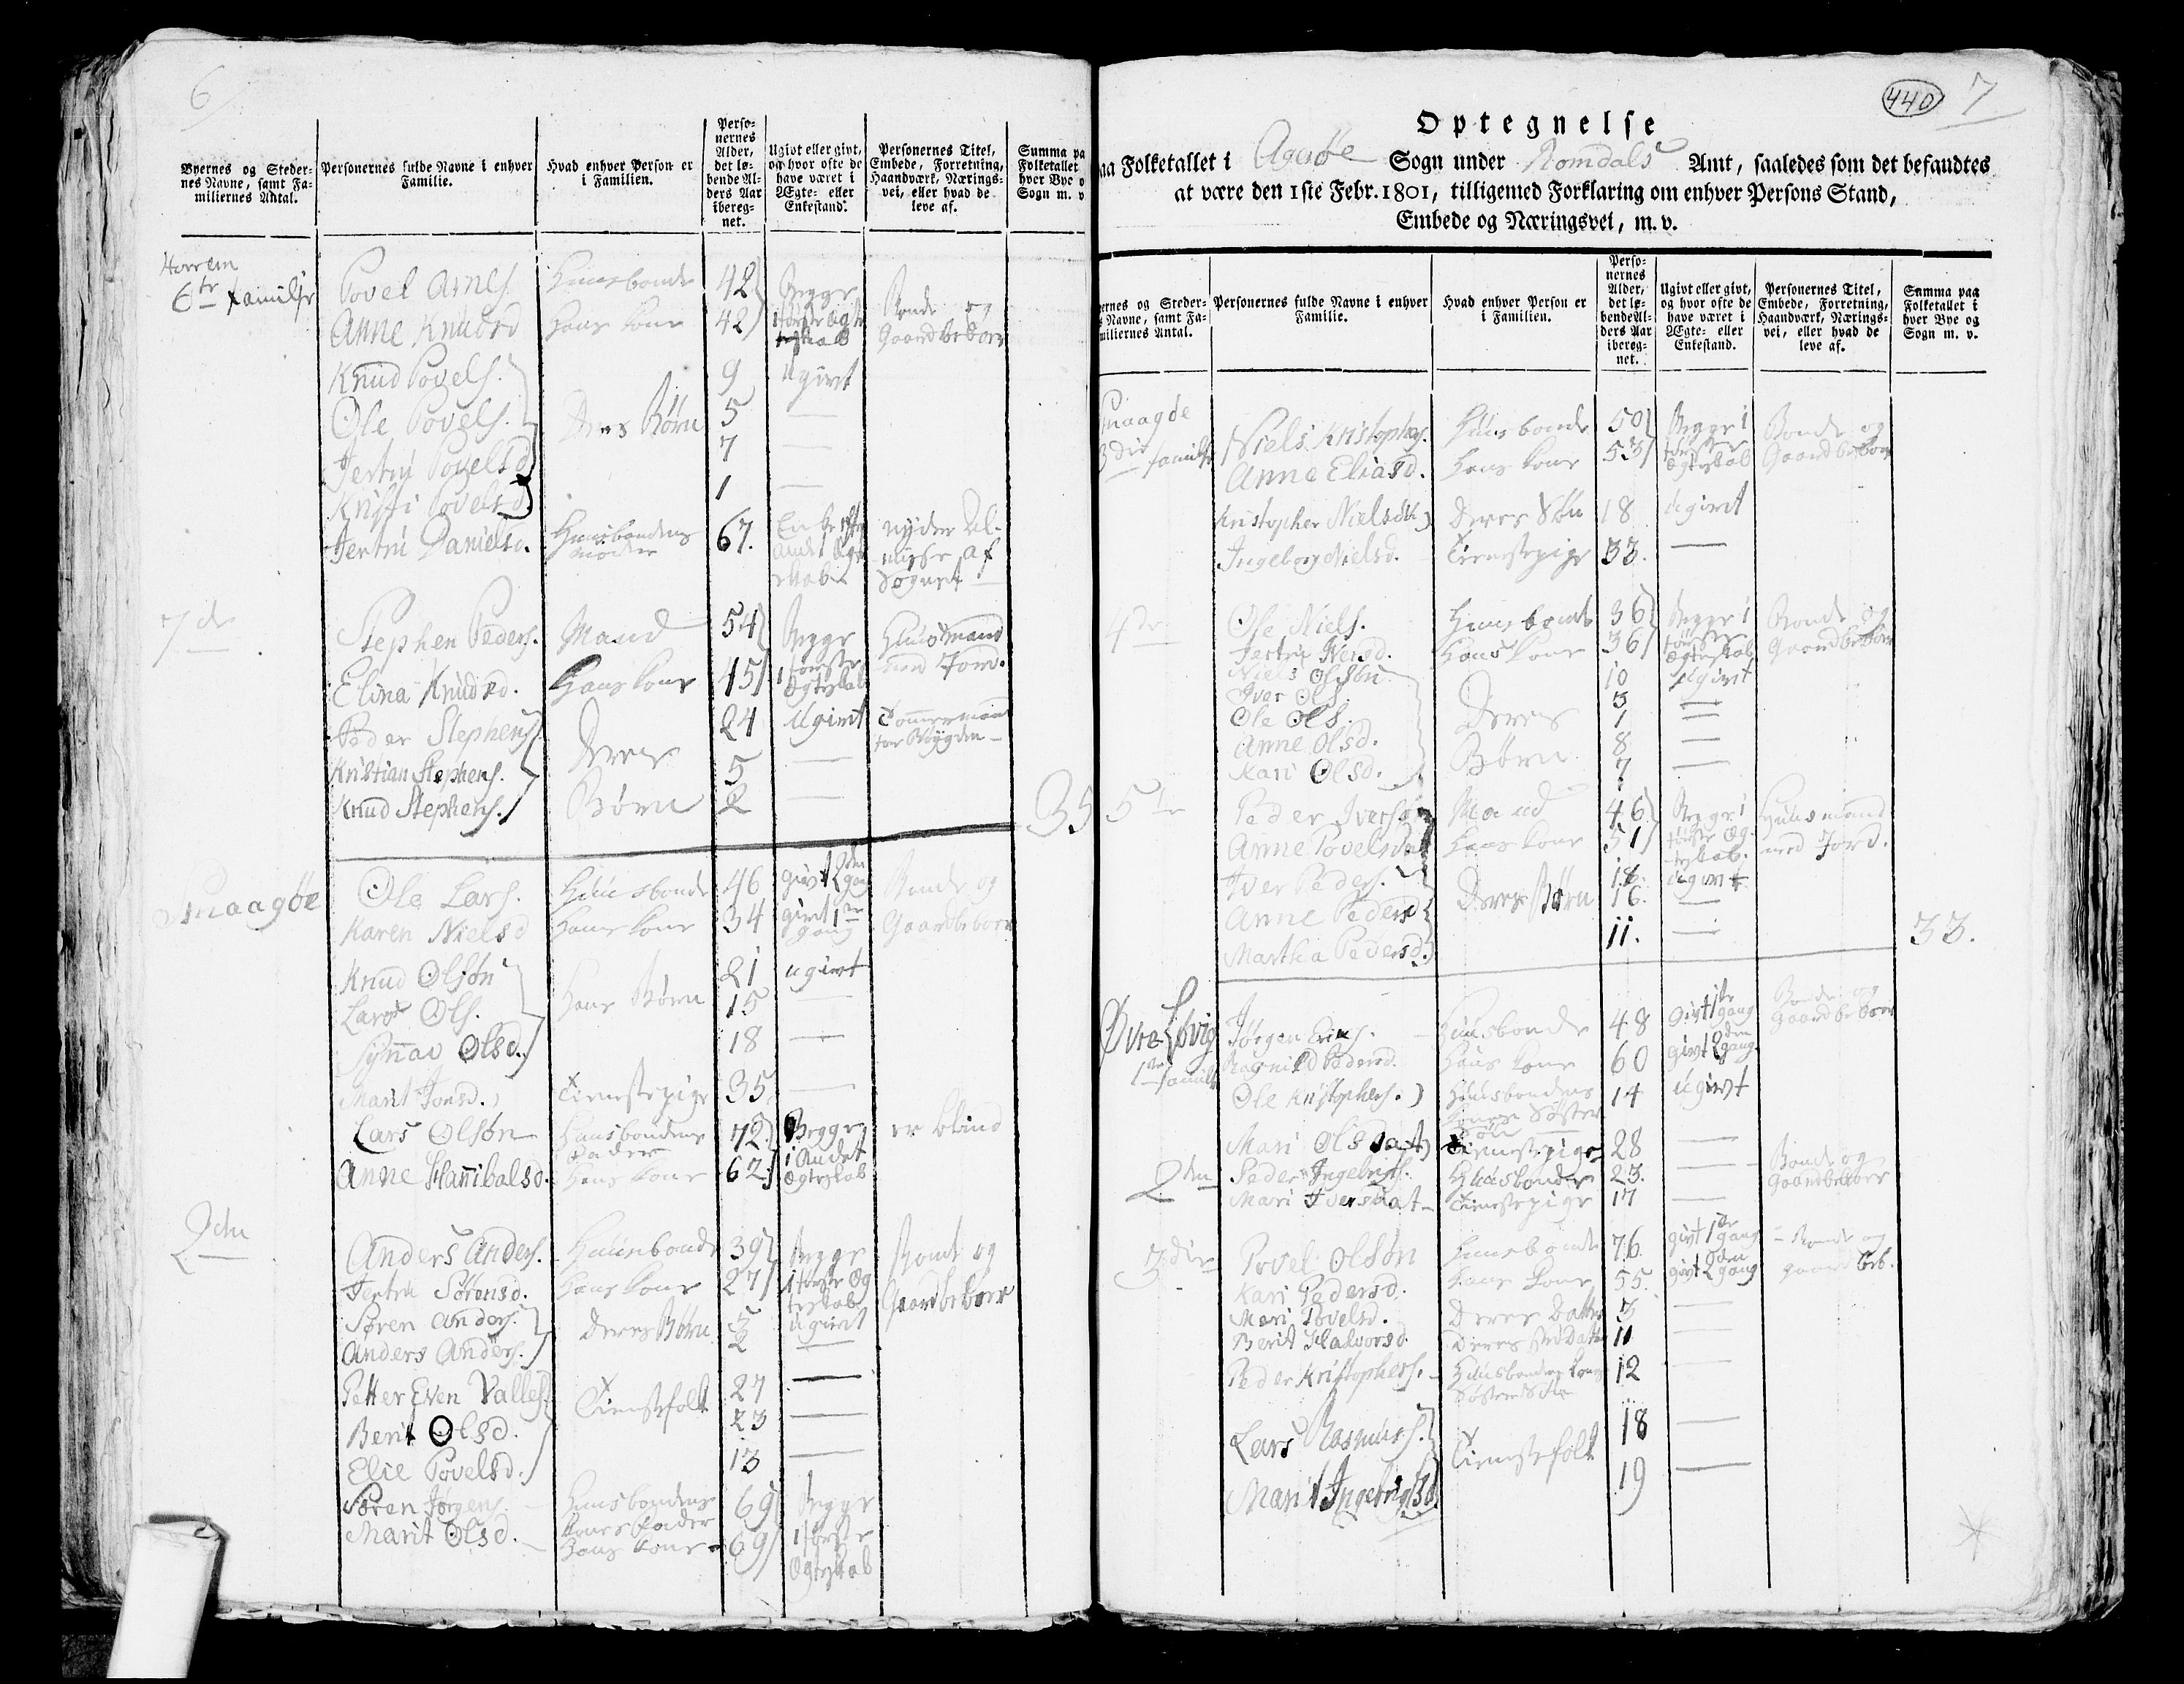 6
Byernes og Steder-
nes Navne, samt Fa-
miliernes Antal.
Personernes fulde Navne i enhver
Familie.
Hvad enhver Person er
i Familien.
Perso-
nernes
Alder,
det lø-
bende Al-
ders Aar
ibereg-
net.
Ugivt eller givt,
og hvor ofte de
have været i
Ægte- eller
Enkestand.
Personernes Titel,
Embede, Forretning,
Haandværk, Nærings-
vei, eller hvad de
leve af.
Summa pa
Folketallet
hver Bye o
Sogn m. v
Horrem
6te Familje
Povel Arnes. Huusbonde 42 Begge
Anne Knudsd hans kone 42 i første Ægte Bonde og
teskab Gaardbeboer
Knud Povels. 9 Ugivt
Ole Povels. Deres Børn 5 —
Jertru Povelsd 7 —
Kristi Povelsd 1 —
Jertru Danielsd. Huusbondens 67. Enke efter nyder Al-
Moder andet Ægte misse af
skab Sognet
7de
Stephen Peders. Mand 54 Begge Huusmand
Elina Knudsd. Hans kone 45 i første med Jord.
Ægteskab
Peder Stephens 24 Ugivt Tømmermand
for Bygden —
Kristian Stephens. Deres 5 —
Knud Stephens. Børn 2 —
35
Smaagøe Ole Lars. Huusbonde 46 givt 2den gang Bonde og
Karen Nielsd hans kone 34 givt 1te gang Gaardbeboer
Knud Olsøn 21 ugivt
Lars Ols. hans Børn 15 —
Synnav Olsd. 18 —
Marit Jonsd. Tienestepige 35 —
Lars Olsøn Huusbondens 72 Begge er blind
Fader i Andet
Anne Hannibalsd. hans kone 62 Ægteskab
2den
Anders Anders. Huusbonde 39 Begge Bonde og
Jertru Sørensd. hans kone 27 i første Æg Gaardbeboer
teskab
Søren Anders. Deres Børn 5 ugivt
Anders Anders. 2 —
Petter Even Valles. 27 —
Berit Olsd. Tienestefolk 23 —
Elie Povelsd. 13 —
Søren Jørgens. — Huusbondens 69 Begge
Kones Fader i første
Marit Olsd. — Hans kone 69 Ægteskab
440 7
Optegnelse
aa Folketallet i Agerøe Sogn under Romdals Amt, saaledes som det befandtes
at være den 1ste Febr. 1801, tilligemed Forklaring om enhver Persons Stand,
Embede og Næringsvei, m. v.
ernes og Steder-
s Navne, samt Fa-
miliernes Antal.
Personernes fulde Navne i enhver
Familie.
Hvad enhver Person er
i Familien.
Perso-
nernes
Alder,
det lø-
bende Al-
ders Aar
ibereg-
net.
Ugivt eller givt,
og hvor ofte de
have været i
Ægte- eller
Enkestand.
Personernes Titel,
Embede, Forretning,
Haandværk, Nærings-
vei, eller hvad de
leve af.
Summa paa
Folketallet i
hver Bye og
Sogn m. v.
Smaagøe
3die familje
Niels Kristophers. Huusbonde 50 Begge i Bonde og
Anne Eliasd. hans kone 53 første Gaardbeboer
Ægteskab
Kristopher Nielsøn Deres Søn 18 ugivt
Ingeborg Nielsd. Tienestepige 33. —
4de
Ole Niels. Huusbonde 36 Begge i Bonde og
Jertru Iversd. hans kone 36 første Gaardbeboer
Ægteskab
Niels Olsøn 10 ugivt
Iver Ols. 3 —
Ole Ols. Deres 1 —
Anne Olsd. Børn 8 —
Mari Olsd. 7 —
5te
Peder Iversøn Mand 46 Begge i Huusmand
Anne Povelsdat hans kone 51 første Æg- med Jord.
teskab.
Iver Peders. 18. ugivt
Anne Pedersd Deres Børn 16. —
Martha Pedersd. 11. —
33.
Øvre Løvig
1te familie
Jørgen Eriks. Huusbonde 48 givt 1te gang Bonde og
Gaardbeboer
Ragnild Pedersd. hans kone 60 givt 2den gang.
Ole Kristophers. Huusbondens 14 ugivt
Kones Søster
Søn
Mari Olsdat Tienestepige 28 —
2den Peder Ingebrigts. Huusbonde 23. — Bonde og
Gaardbeboer
Mari Iversdat — Tienestepige 17 —
3die Povel Olsøn Huusbonde 76 givt 1te gang — Bonde og
Kari Pedersd. hans kone 55. givt 2den gang gaardbeb.
Mari Povelsd. Deres Datter 5 —
Berit Halvorsd. Deres 11 —
Peder Kristophers. — Huusbondens kones 12 —
Søstersøn
Lars Rasmus. Tienestefolk 18 —
Marit Ingebrigtsd. 19 —